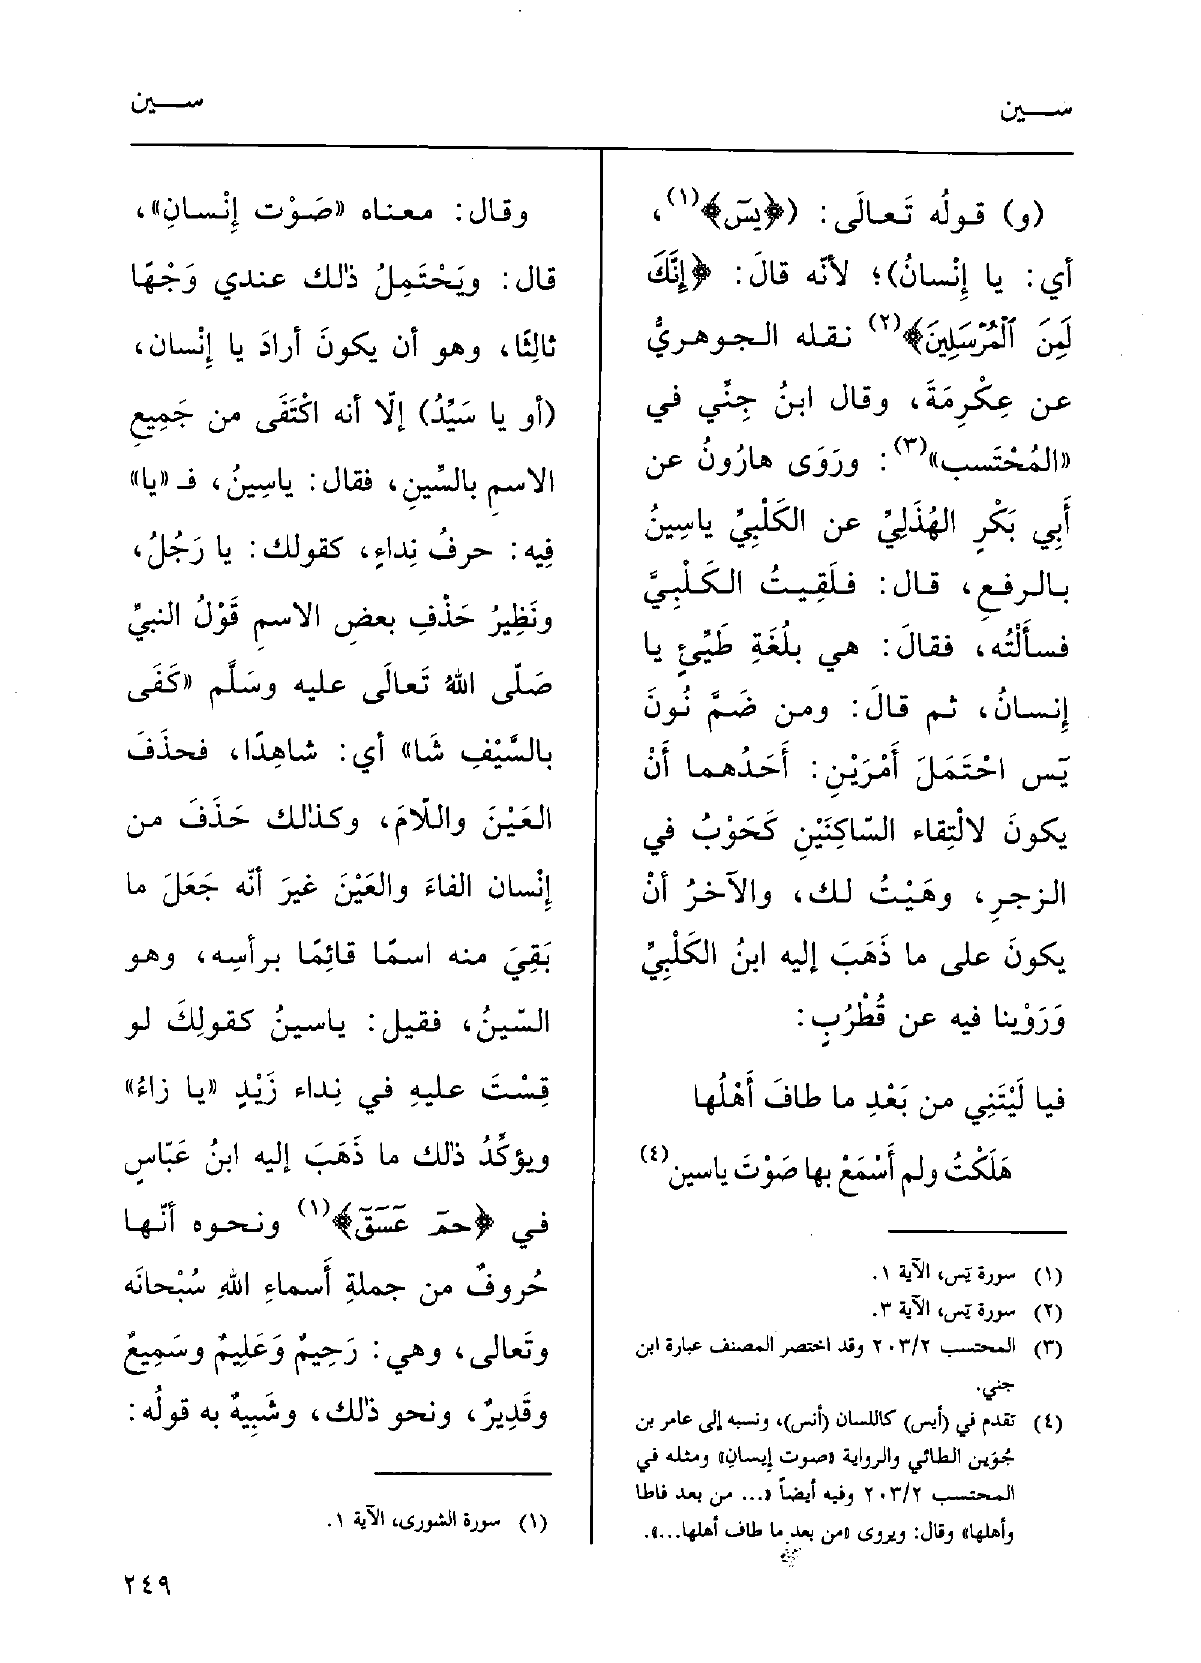 سـين
سـين
(و) قولُه تَعالَى: (﴿يسٓ﴾(١)،
أي: يا إِنْسانُ)؛ لأنّه قالَ: ﴿إِنَّكَ
لَمِنَ ٱلْمُرْسَلِينَ﴾(٢) نقله الجوهريُّ
عن عِكْرِمَةَ، وقال ابنُ جِنِّي في
«المُحْتَسب»(٣): ورَوَى هارُونُ عن
أَبِي بَكْرٍ الهُذَلِيِّ عن الكَلْبِيِّ ياسِينُ
بالرفعِ، قال: فلَقِيتُ الكَلْبِيَّ
فسأَلْتُه، فقالَ: هي بلُغَةِ طَيِّئٍ يا
إِنسانُ، ثم قالَ: ومن ضَمَّ نُونَ
يَس احْتَمَلَ أَمْرَيْنِ: أَحَدُهما أَنْ
يكونَ لالْتِقاء السّاكِنَيْنِ كَحَوْبُ في
الزجرِ، وهَيْتُ لك، والآخرُ أنْ
يكونَ على ما ذَهَبَ إليه ابنُ الكَلْبِيِّ
وَرَوْينا فيه عن قُطْرُبٍ:
فيا لَيْتَنِي من بَعْدِ ما طافَ أَهْلُها
هَلَكْتُ ولم أَسْمَعْ بها صَوْتَ ياسين(٤)
(١) سورة يَس، الآية ١.
(٢) سورة يَس، الآية ٣.
(٣) المحتسب ٢٠٣/٢ وقد اختصر المصنف عبارة ابن
جني.
(٤) تقدم في (أيس) كاللسان (أنس)، ونسبه إلى عامر بن
جُوَين الطائي والرواية «صوت إيسانِ» ومثله في
المحتسب ٢٠٣/٢ وفيه أيضاً «... من بعد فاطا
وأهلها» وقال: ويروى «من بعد ما طاف أهلها...».
وقال: معناه «صَوْت إِنْسانِ»،
قال: ويَحْتَمِلُ ذلك عندي وَجْهًا
ثالِثًا، وهو أن يكونَ أرادَ يا إِنْسان،
(أو يا سَيِّدُ) إلّا أنه اكْتَفَى من جَمِيعِ
الاسمِ بالسِّينِ، فقال: ياسِينُ، فـ «يا»
فِيه: حرفُ نِداءٍ، كقولك: يا رَجُلُ،
ونَظِيرُ حَذْفِ بعضِ الاسمِ قَوْلُ النبيِّ
صَلّى اللهُ تَعالَى عليه وسَلَّم «كَفَى
بالسَّيْفِ شَا» أي: شاهِدًا، فحذَفَ
العَيْنَ واللّامَ، وكذلك حَذَفَ من
إِنْسان الفاءَ والعَيْنَ غيرَ أنّه جَعَلَ ما
بَقِيَ منه اسمًا قائِمًا برأسِه، وهو
السّينُ، فقيل: ياسينُ كقولِكَ لو
قِسْتَ عليهِ في نِداء زَيْدٍ «يا زاءُ»
ويؤكِّدُ ذلك ما ذَهَبَ إليه ابنُ عَبّاسٍ
في ﴿حمٓ عٓسٓقٓ﴾(١) ونحوه أنّها
حُروفٌ من جملةِ أَسماءِ اللهِ سُبْحانَه
وتَعالى، وهي: رَحِيمٌ وَعَلِيمٌ وسَمِيعٌ
وقَدِيرٌ، ونحو ذلك، وشَبِيهٌ به قولُه:
(١) سورة الشورى، الآية ١.
٢٤٩